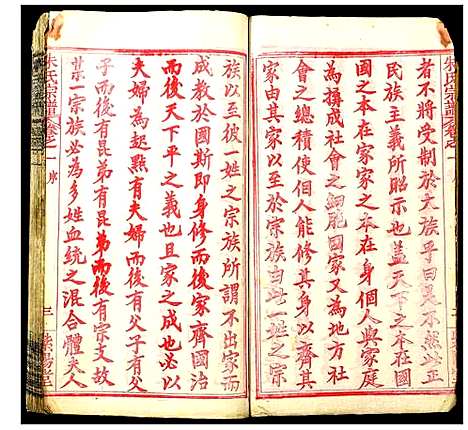 朱氏宗譜卷之一
者不將受制於文族乎曰是不然此正
民族主義所昭示也蓋天下之本在國
國之本在家家之本在身個人與家庭
為構成社會之細胞國家又為地方社
會之總積使個人能修其身以齊其
家由其家以至於宗族由此一姓之宗
族以至彼一姓之宗族所謂不出家而
成教於國斯即身修而後家齊國治
而後天下平之義也且家之成也必以
夫婦為起點有夫婦而後有父子有父
子而後有昆弟有昆弟而後有宗支故
一宗一族必為多姓血統之混合體夫人
朱氏宗譜卷之一
序
三
紫陽堂